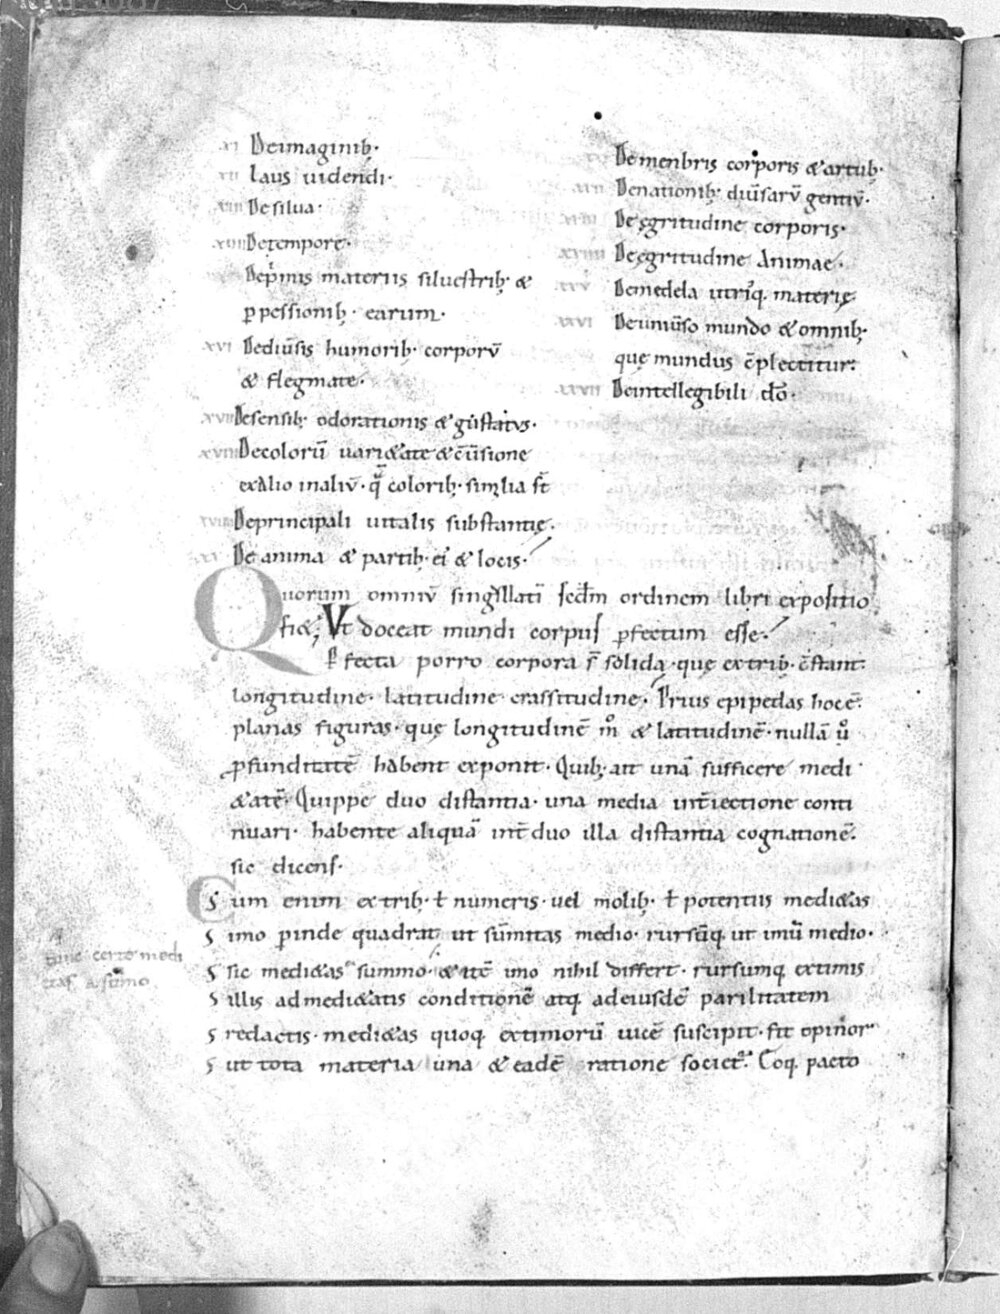 xi Deimaginib;·
xii laus uidendi·
xiii Desilua·
xiiii Detempore·
Dep̄mis materiis siluestrib; &
ꝑpessionib; earum·
xvi Dediūsis humorib; corporū
& flegmate·
xvii Desensib; odorationis & gustatus·
xviii Decolorū uari&ate & cūūsione
exalio inaliū· q̄ colorib; similia st̄
xviiii Deprincipali uitalis substantię·
De anima & partib; ei & locis·
De menbris corporis & artub;·
Denationib; diūsarū gentiū·
xxiii Deęgritudine corporis·
xxiiii Deęgritudine Animae·
xxv Demedela utriq. materię
xxvi Deuniūso mundo & omnib;
quę mundus c̄plectitur:
xxvii Deintellegibili dō·
Quorum omniū singllati scdm ordinem libri expositio
fi&; Ut doceat mundi corpus ꝑfectum esse·
Pfecta porro corpora s̄ solida· quę ex trib; c̄stant:
longitudine· latitudine crassitudine· Prius epipedas hoc ē·
planas figuras· quę longitudinē m̊ & latitudinē· nullā ů
ꝓfunditatē habent exponit· Quib; ait unā sufficere medi
&atē· Quippe duo distantia· una media int̄iectione conti
nuari· habente aliquā int̄ duo illa distantia cognationē·
sic dicens·
Cum enim ex trib; ł numeris· uel molib; ł potentiis medi&as
imo ꝑinde quadrat ut sūmitas medio· rursūq ut imū medio·
sic medi&as summo· & itē imo nihil differt· rursumq extimis
illis ad medi&atis conditionē atq. ad eiusdē parilitatem
redactis· medi&as quoq. extimorū uicē suscipit· fit opinor
ut tota materia una & eadē ratione societ· Eoq. pacto
certe medi
&as a sumo